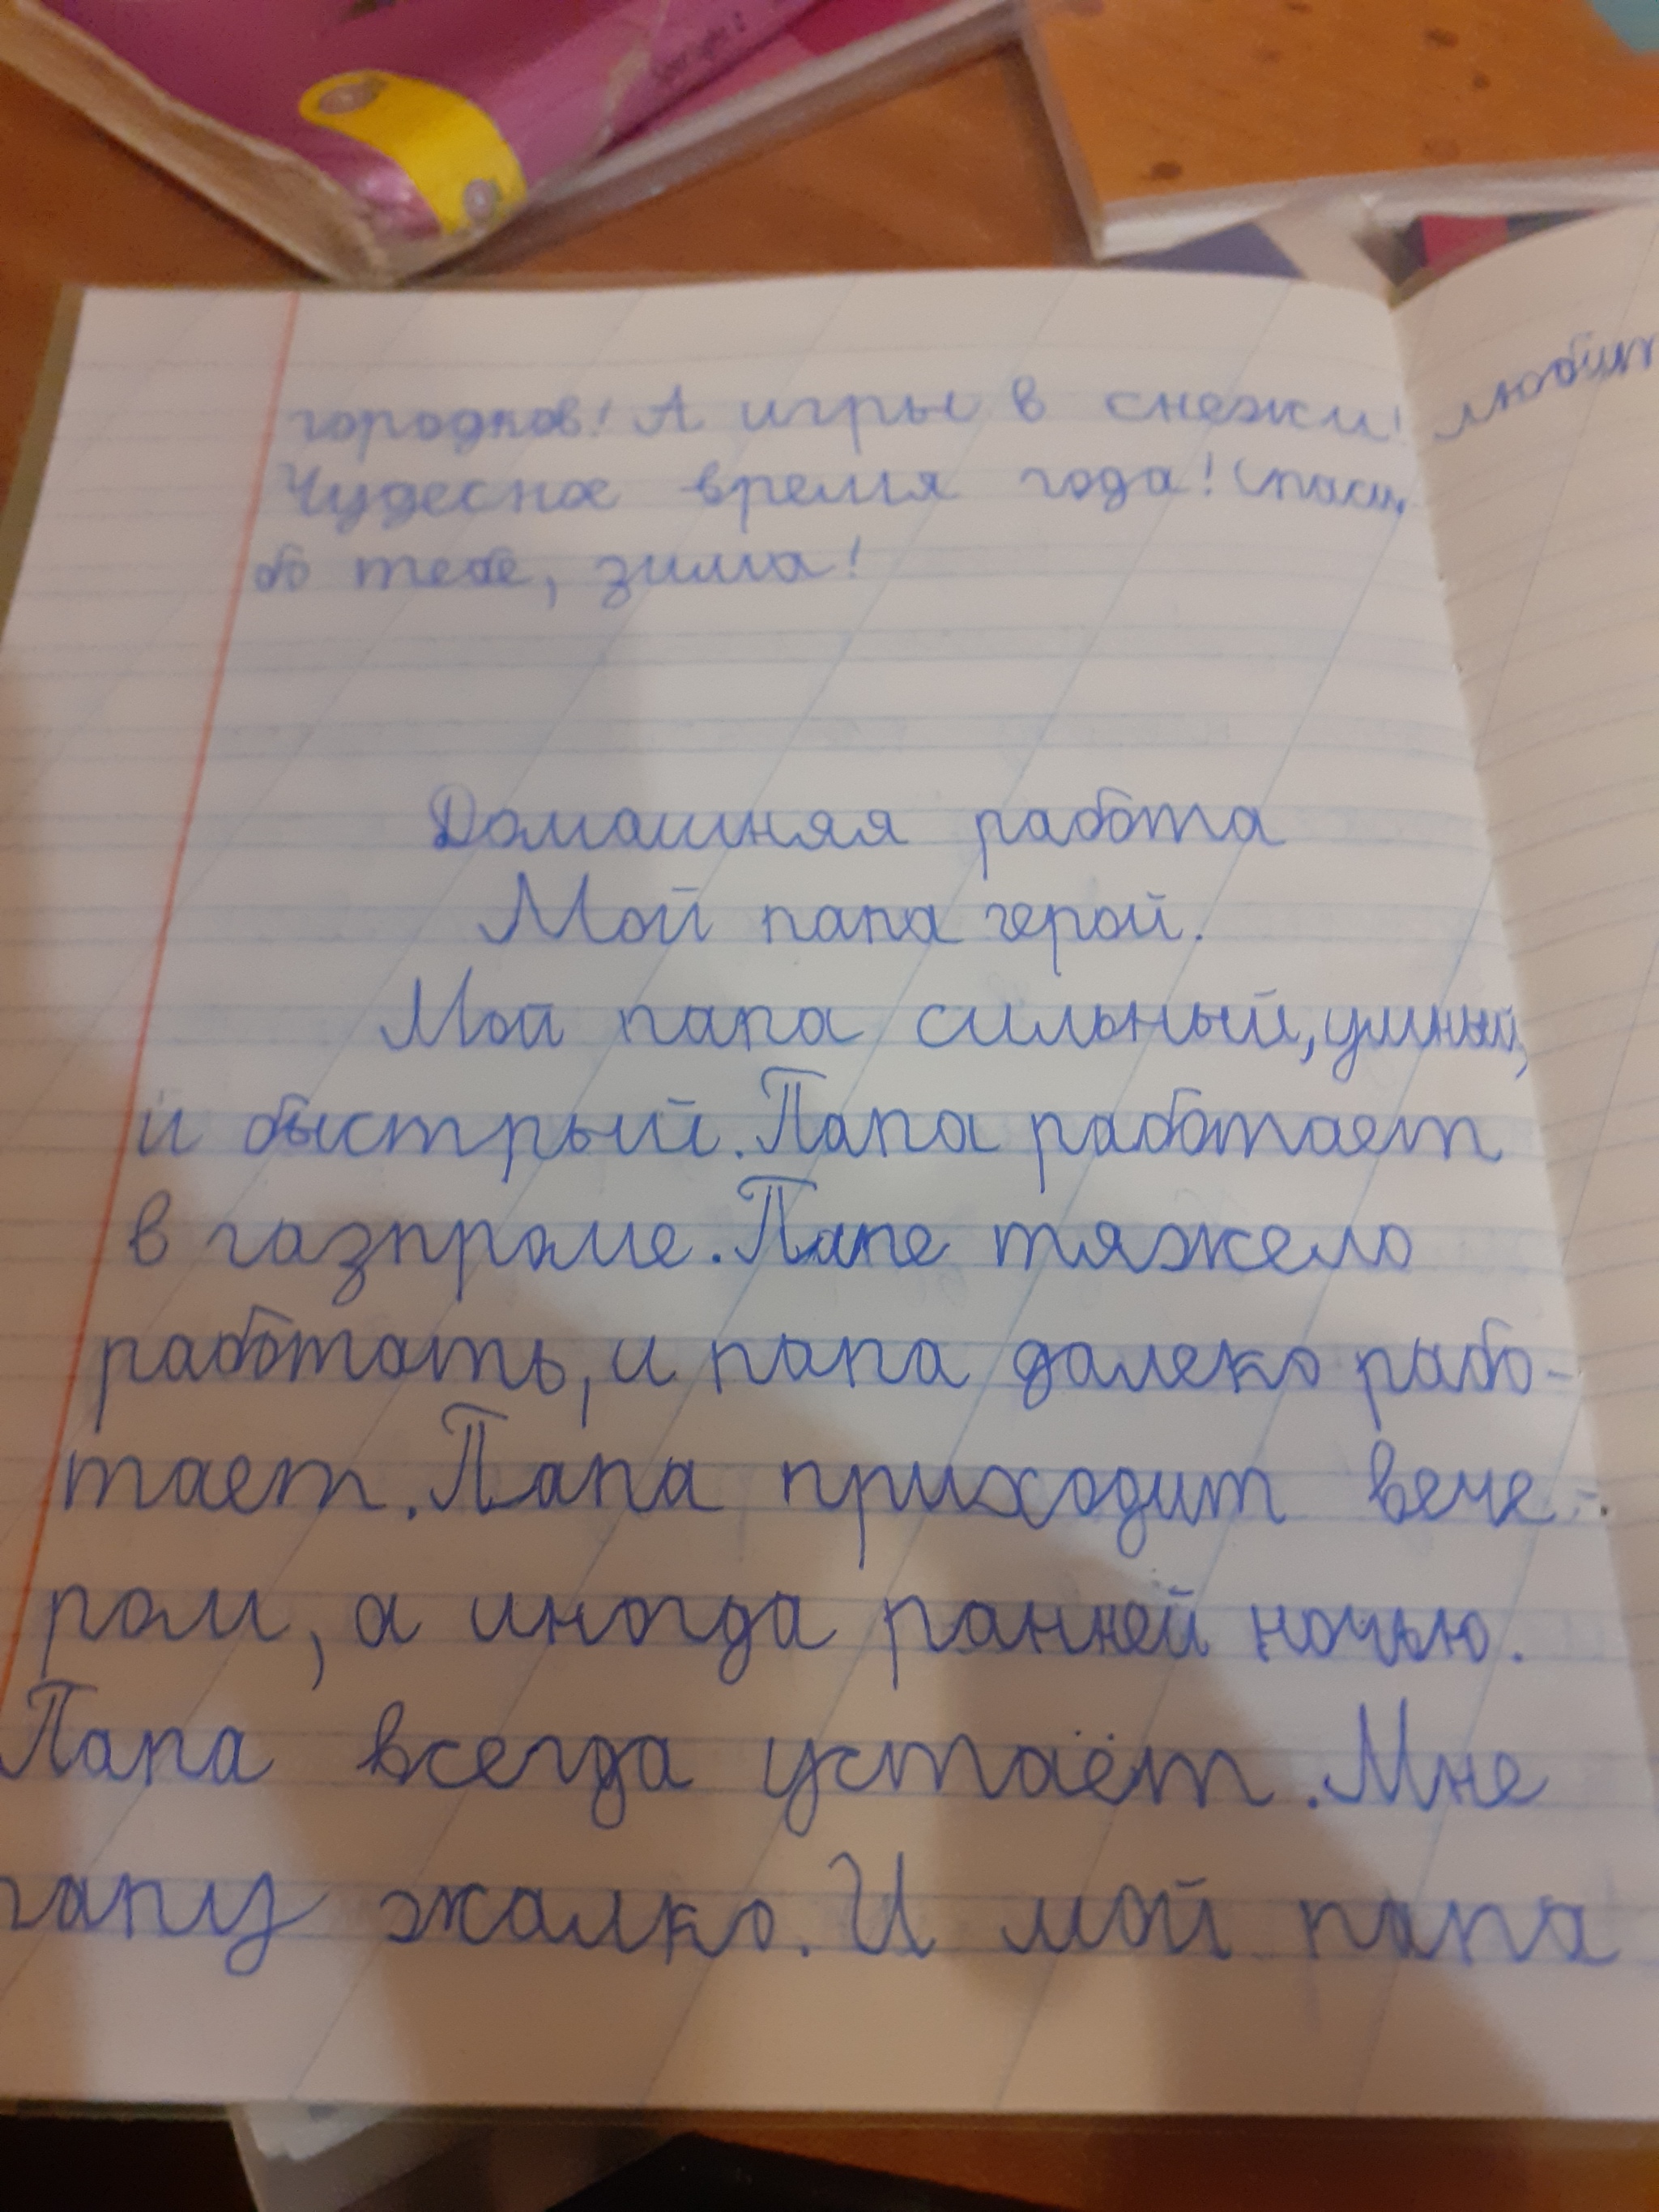 городков! А игры в снежки!
Чудесное время года! Спаси
бо тебе, зима!
Домашняя работа
Мой папа герой.
Мой папа сильный, умный,
и быстрый. Папа работает
в газпроме. Папе тяжело
работать, и папа далеко рабо-
тает. Папа приходит вече-
ром, а иногда ранней ночью.
Папа всегда устаёт. Мне
папу жалко. И мой папа
любит